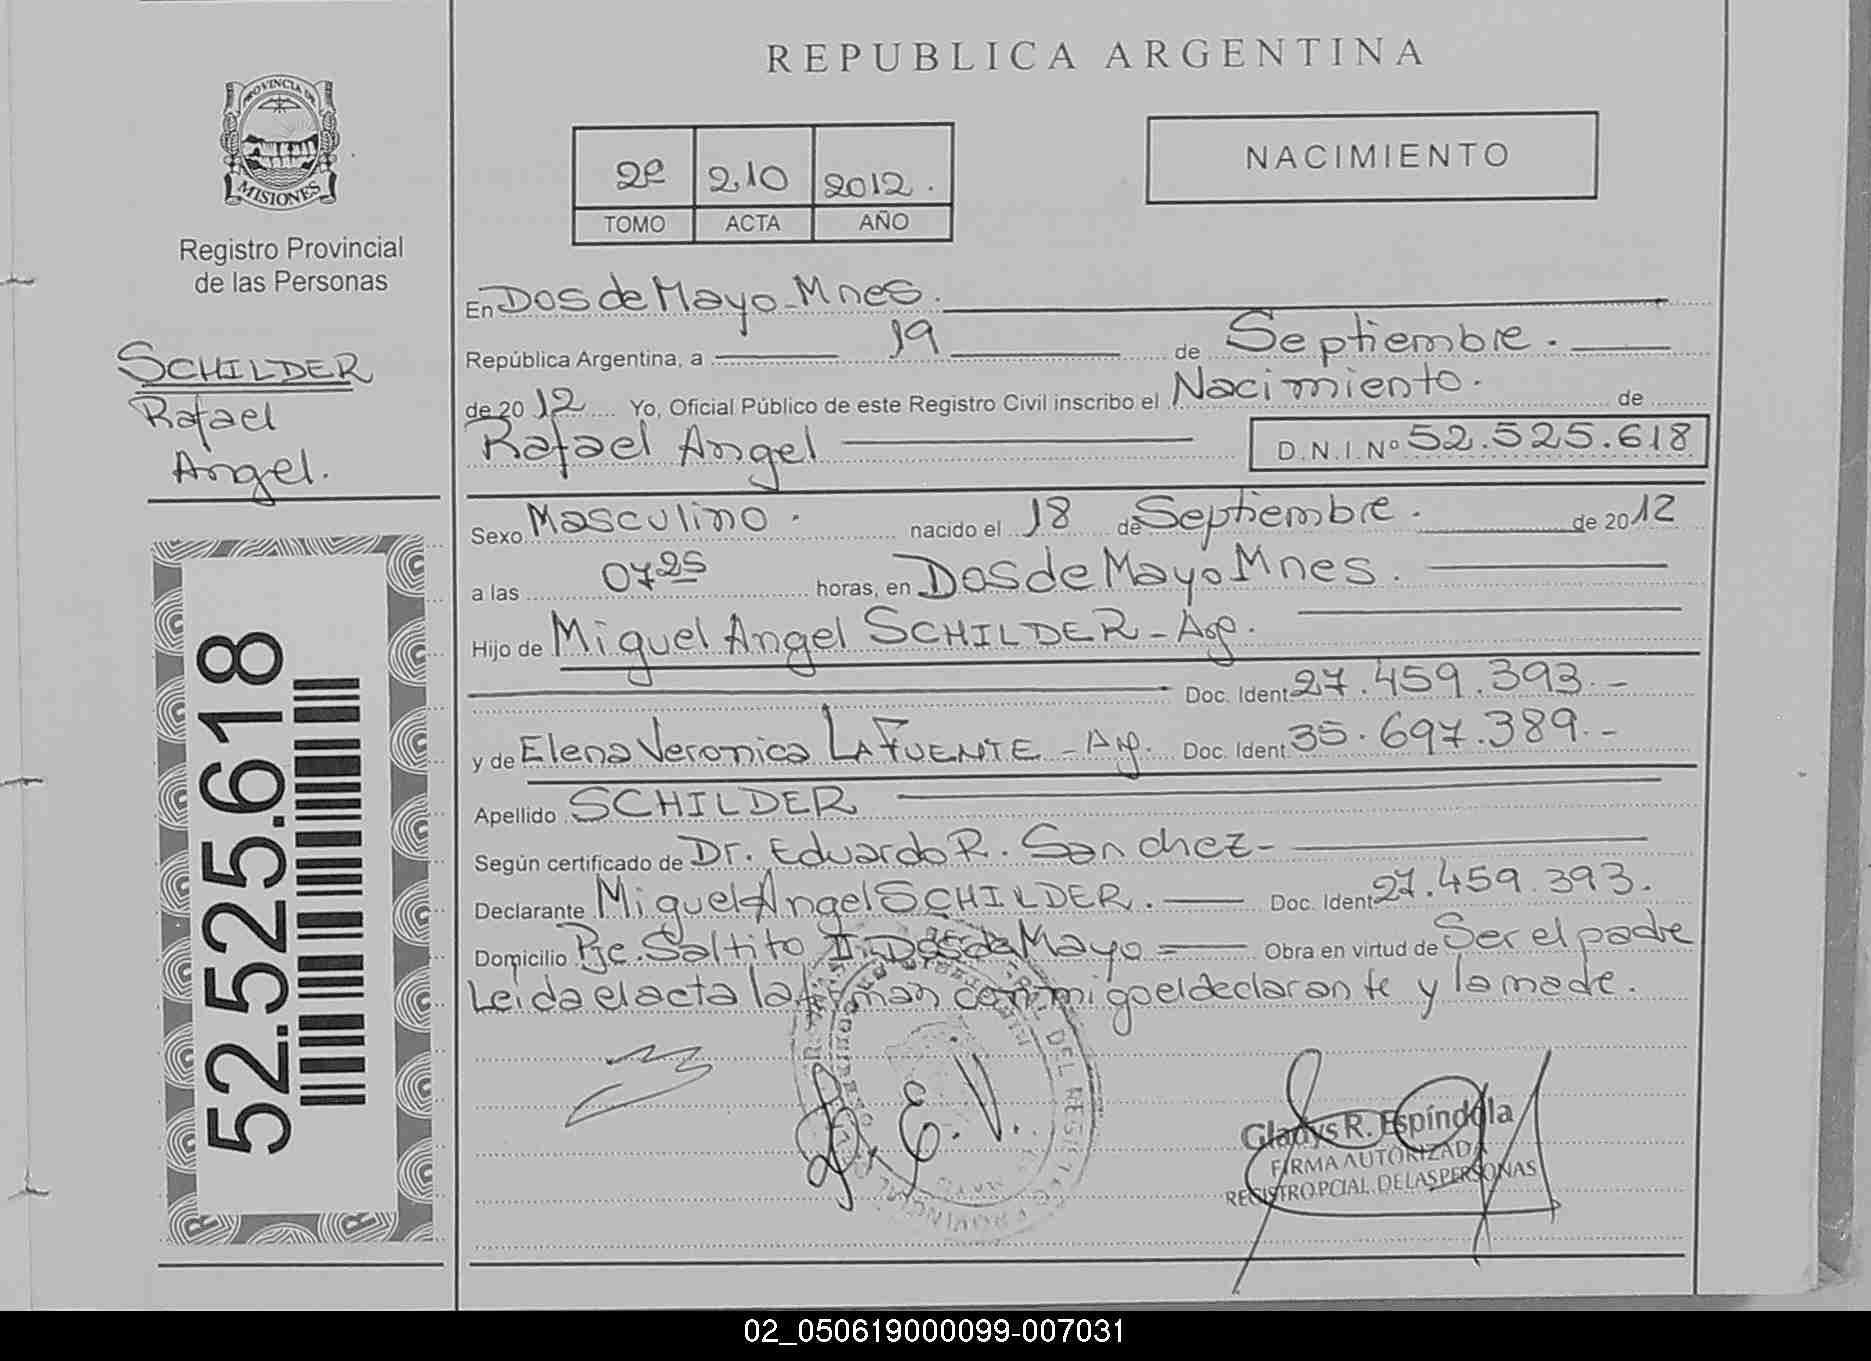 REPUBLICA ARGENTINA
PROVINCIA DE
MISIONES
Registro Provincial
de las Personas
SCHILDER
Rafael
Angel.
52.525.618
2º 210 2012.
TOMO ACTA AÑO
NACIMIENTO
En Dos de Mayo Mnes.
República Argentina, a 19 de Septiembre.
de 2012 Yo, Oficial Público de este Registro Civil inscribo el Nacimiento. de
Rafael Angel D.N.I.Nº 52.525.618
Sexo Masculino. nacido el 18 de Septiembre. de 2012
a las 07 25 horas, en Dos de Mayo Mnes.
Hijo de Miguel Angel SCHILDER - Arg.
Doc. Ident 27.459.393.-
y de Elena Veronica LAFUENTE - Arg. Doc. Ident 35.697.389.-
Apellido SCHILDER
Según certificado de Dr. Eduardo R. Sanchez-
Declarante Miguel Angel SCHILDER. Doc. Ident 27.459.393.
Domicilio Pje. Saltito II Dos de Mayo = Obra en virtud de Ser el padre
Leida el acta la firman conmigo el declarante y la madre.
E.V.
Gladys R. Espíndola
FIRMA AUTORIZADA
REGISTRO PCIAL. DE LAS PERSONAS
02_050619000099-007031